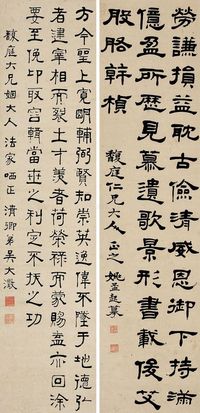 勞謙損益耽古儉清威恩御下持滿
億盈所歷見慕遺歌景形書載後艾
股肱幹楨
馥庭仁兄大人正之 姚孟起
方今聖上寬明輔弼賢知崇英逸偉不墜于地德弘
者建宰相而裂土才羨者荷榮祿而蒙賜盍亦回塗
要至俛卬取容輯當世之利定不拔之功
馥庭大兄姻大人 法家哂正 清卿弟吳大澂